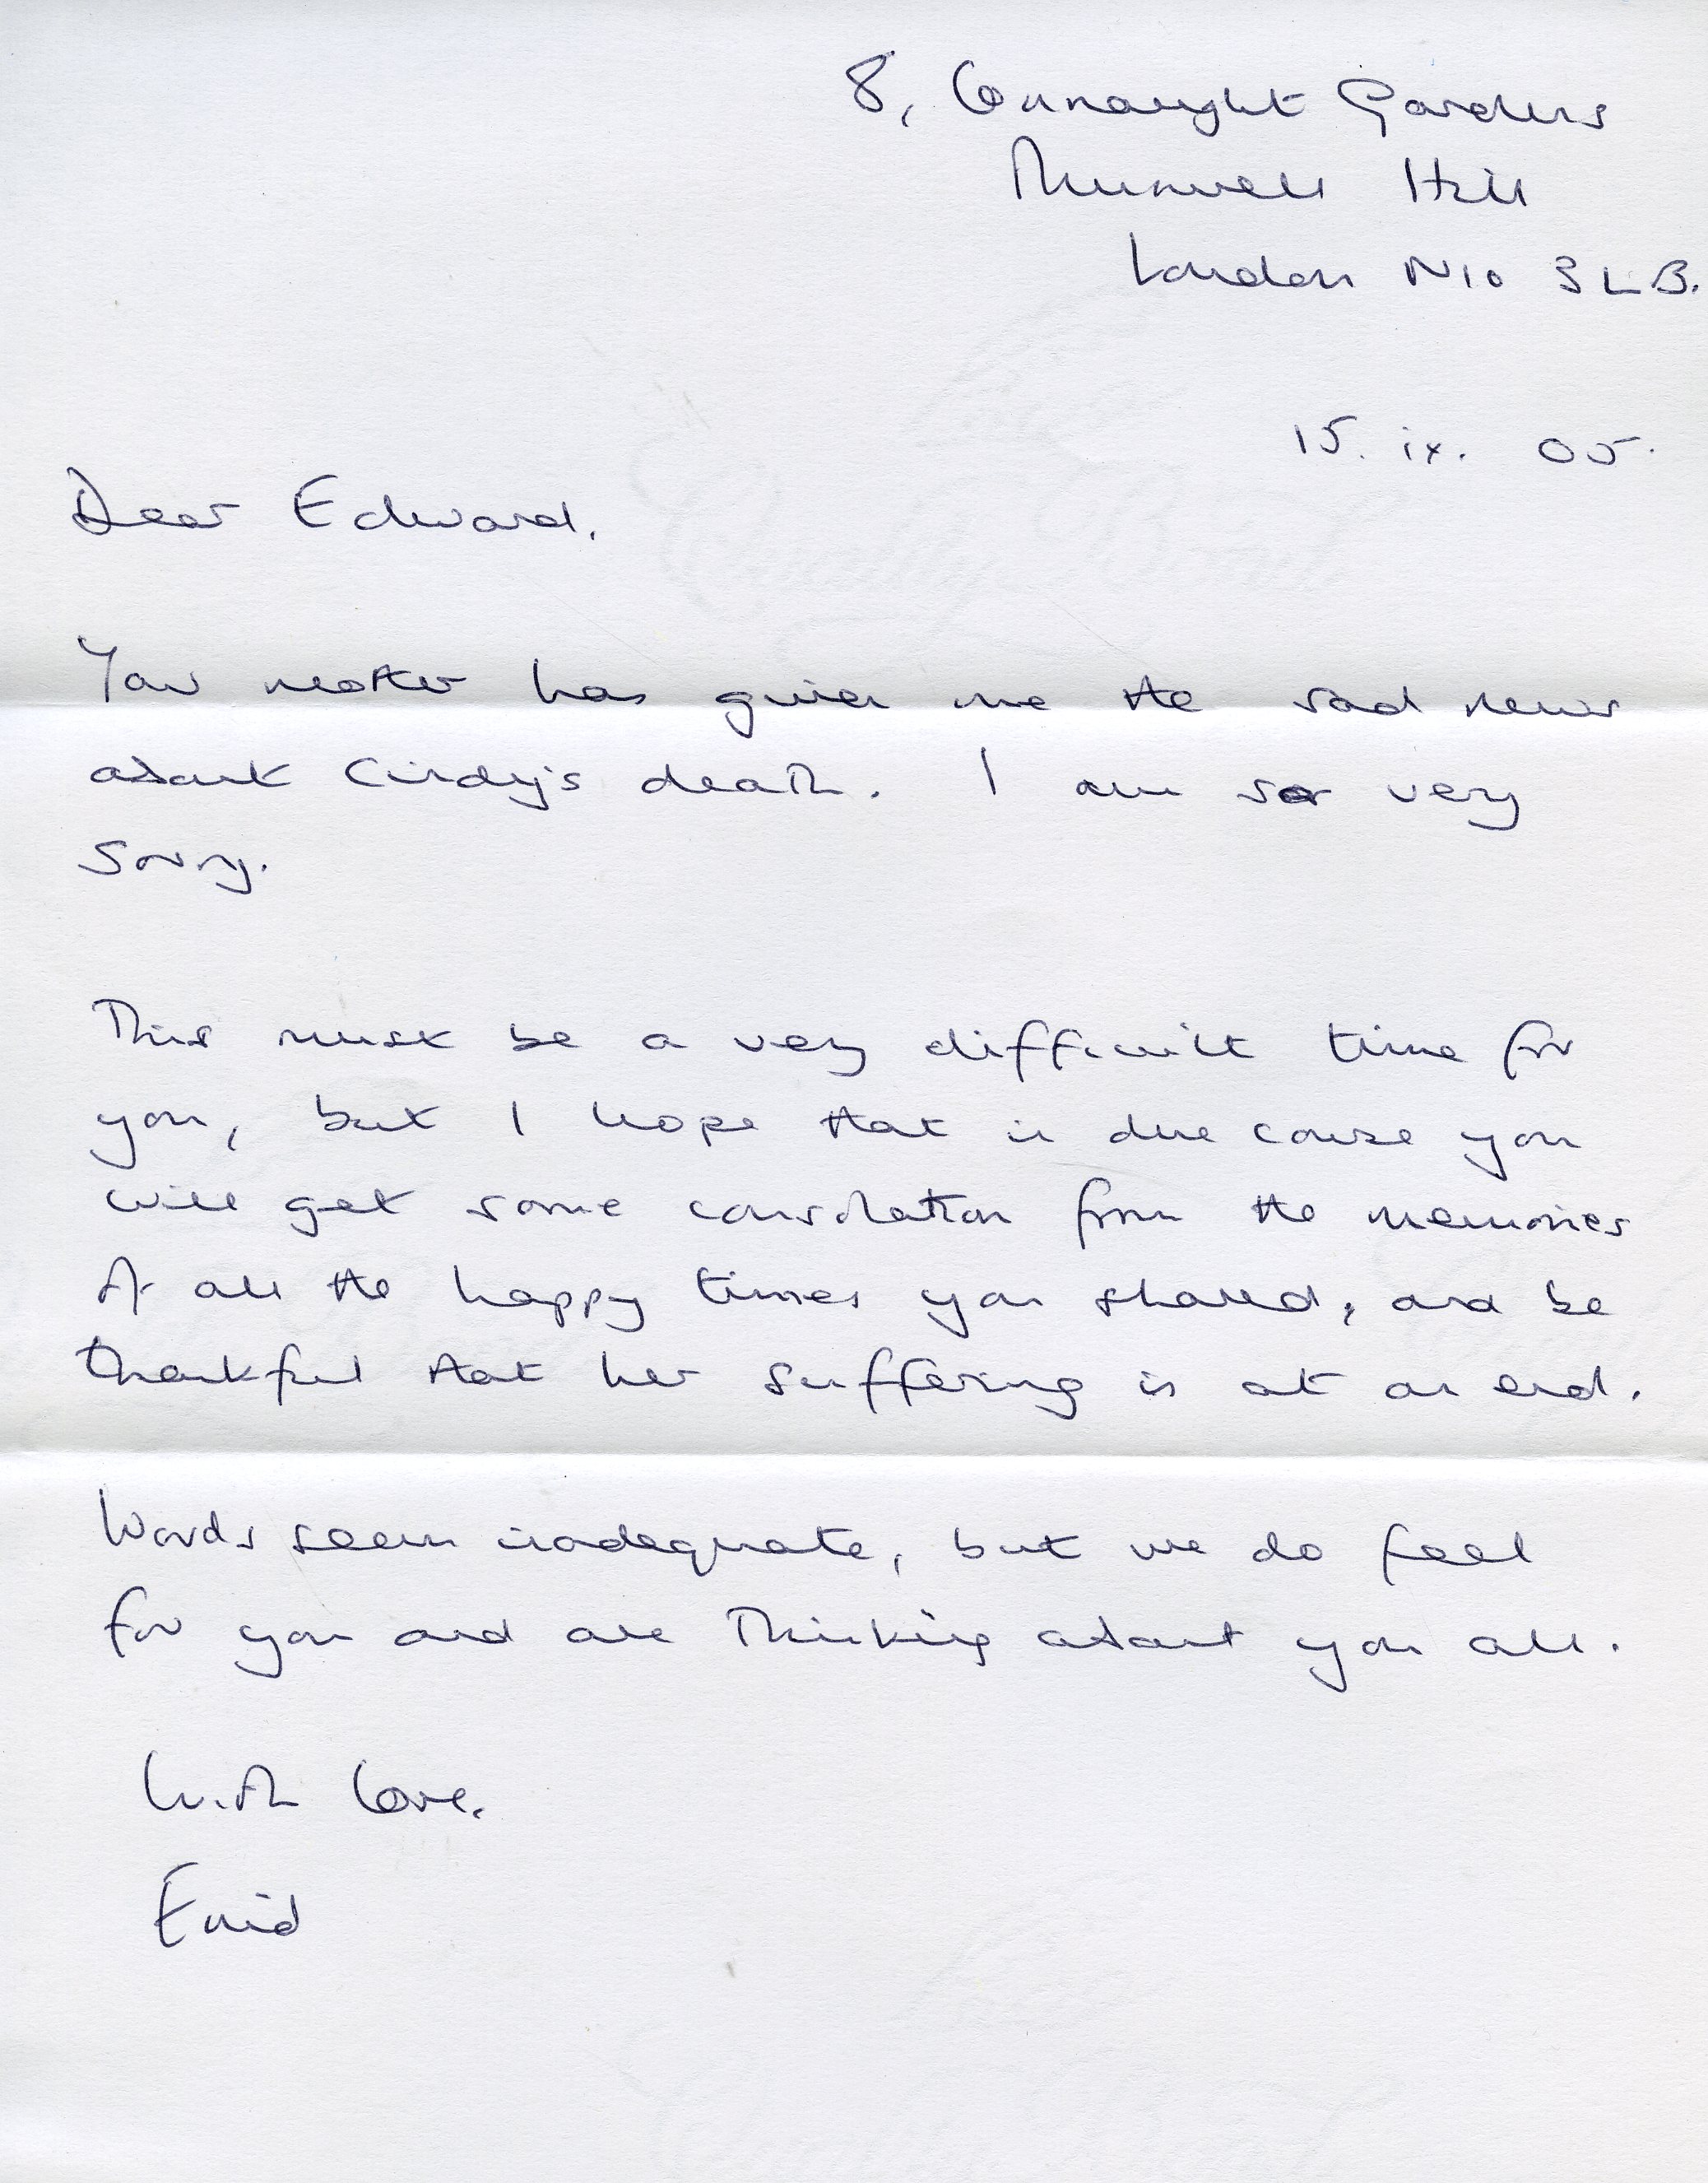 8, Connaught Gardens
Muswell Hill
London N10 3LB.
15. ix. 05.
Dear Edward,
Your mother has given me the sad news
about Cindy's death. I am so very
sorry.
This must be a very difficult time for
you, but I hope that in due course you
will get some consolation from the memories
of all the happy times you shared, and be
thankful that her suffering is at an end.
Words seem inadequate, but we do feel
for you and are thinking about you all.
With love,
Enid